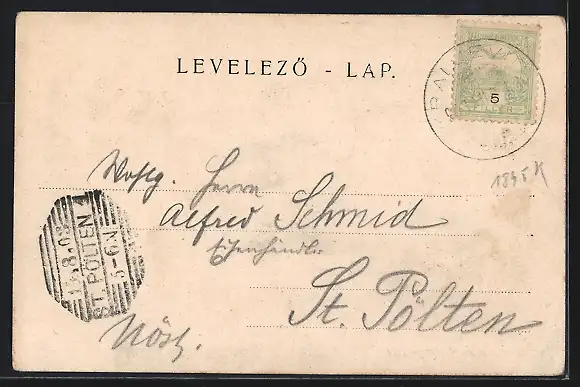 LEVELEZŐ - LAP.
5
1845 K
Herrn
Alfred Schmid
Eisenhändler
St. Pölten
Nöst.
ST. PÖLTEN 1
5-6.N